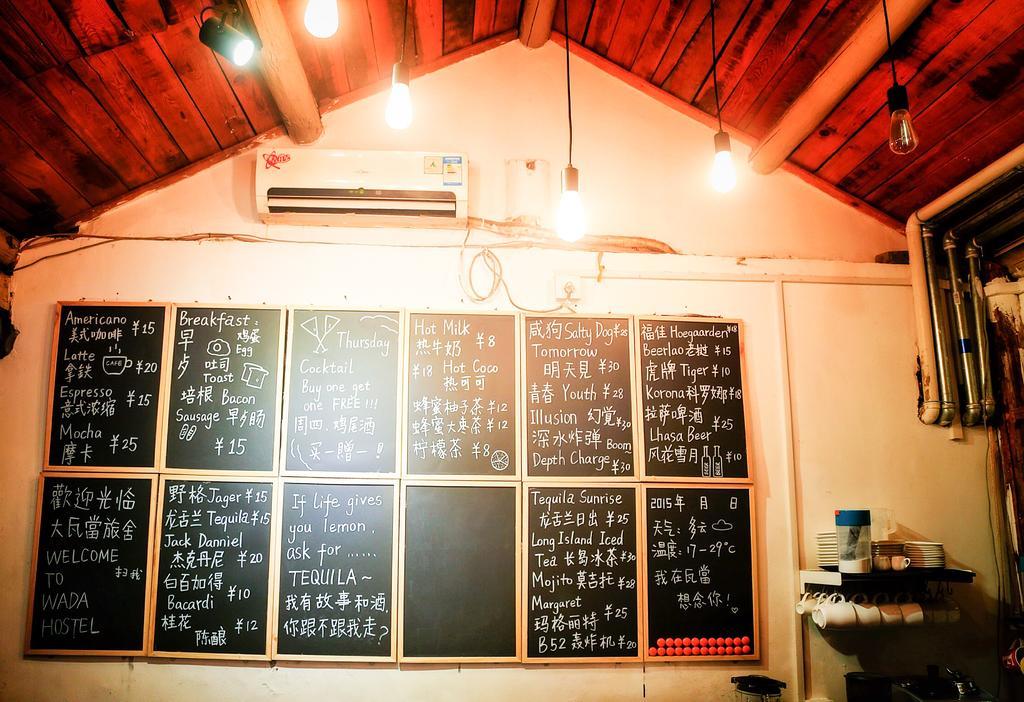 Americano
美式咖啡 ¥15
Latte
拿鉄 CAFE ¥20
Espresso
意式浓缩 ¥15
Mocha
摩卡 ¥25
Breakfast:
早 鸡蛋
夕 Egg
吐司
Toast
培根 Bacon
Sausage 早夕肠
¥15
Thursday
Cocktail
Buy one get
one FREE!!!
周四.鸡尾酒
买一赠一!
Hot Milk
热牛奶 ¥8
¥18 Hot Coco
热可可
蜂蜜柚子茶 ¥12
蜂蜜大枣茶 ¥12
柠檬茶 ¥8
咸狗 Salty Dog ¥25
Tomorrow
明天見 ¥30
青春 Youth ¥28
Illusion 幻覚 ¥30
深水炸弹 Boom
Depth Charge ¥30
福佳 Hoegaarden ¥18
Beerlao 老挝 ¥15
虎牌 Tiger ¥10
Korona 科罗娜 ¥18
拉萨啤酒 ¥25
Lhasa Beer
风花雪月 ¥10
歡迎光临
大瓦當旅舍
WELCOME
TO 扫我
WADA
HOSTEL
野格 Jager ¥15
龙舌兰 Tequila ¥15
Jack Danniel
杰克丹尼 ¥20
白百加得
Bacardi ¥10
桂花
陈酿 ¥12
If life gives
you lemon,
ask for ......
TEQUILA~
我有故事和酒.
你跟不跟我走?
Tequila Sunrise
龙舌兰日出 ¥25
Long Island Iced
Tea 长岛冰茶 ¥30
Mojito 莫吉托 ¥28
Margaret
玛格丽特 ¥25
B52 轰炸机 ¥20
2015年 月 日
天气: 多云
温度: 17-29°C
我在瓦當
想念你!